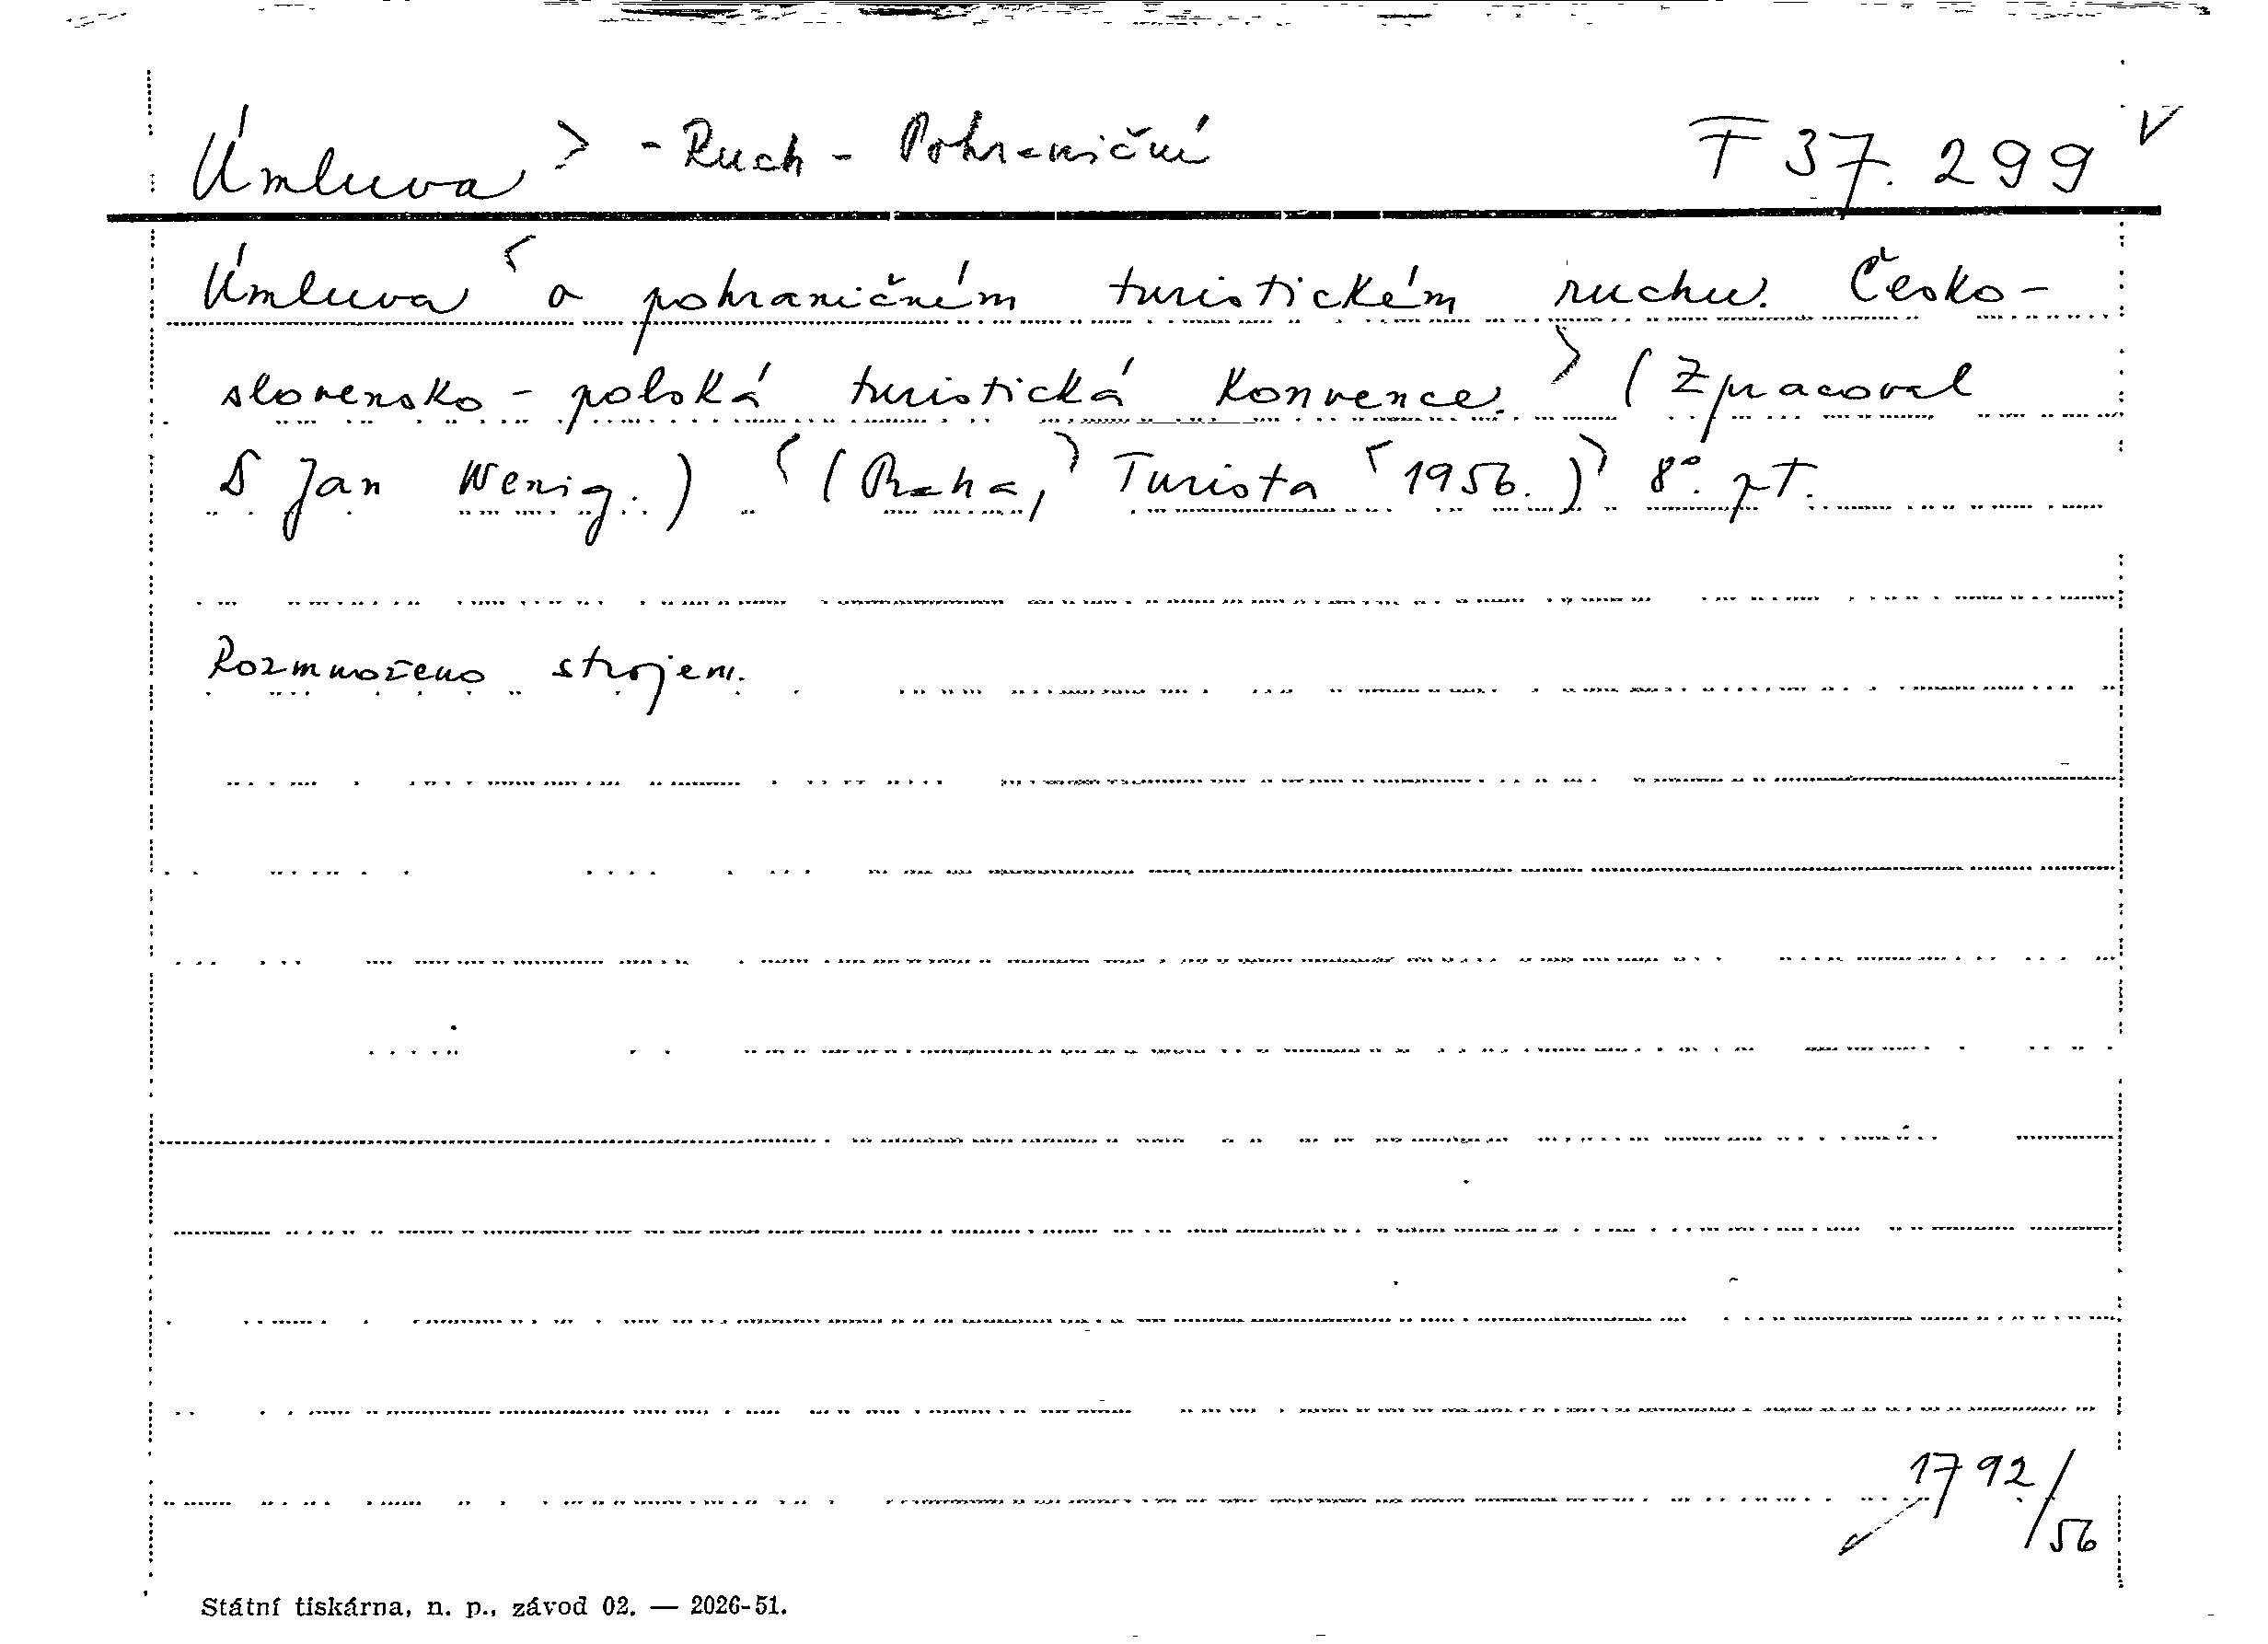 Úmluva > - Ruch - Pohraniční T 37.299 v
Úmluva < o pohraničném turistickém ruchu. Česko-
slovensko-polská turistická konvence. > (Zpracoval
D Jan Wenig.) < (Praha, > Turista < 1956.) > 8°. pt.
Rozmnoženo strojem.
1792/56
Státní tiskárna, n. p., závod 02. — 2026-51.